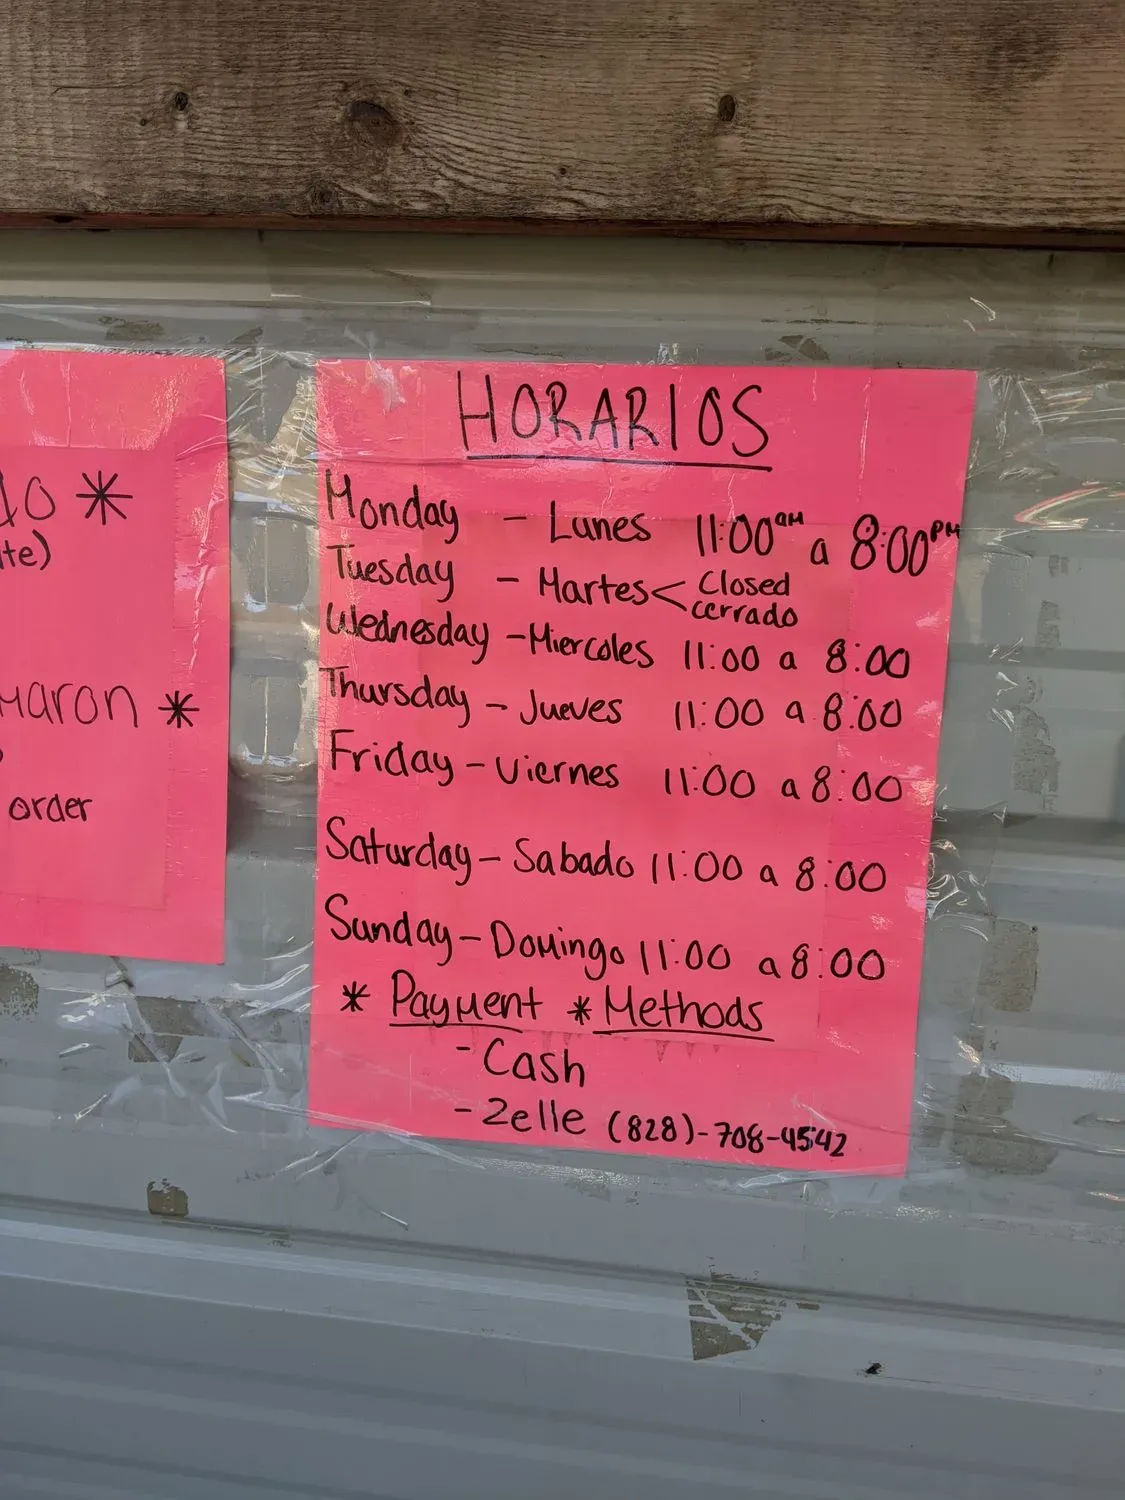 *
order
HORARIOS
Monday - Lunes 11:00 AM a 8:00 PM
Tuesday - Martes < Closed
cerrado
Wednesday - Miercoles 11:00 a 8:00
Thursday - Jueves 11:00 a 8:00
Friday - Viernes 11:00 a 8:00
Saturday - Sabado 11:00 a 8:00
Sunday - Domingo 11:00 a 8:00
* Payment * Methods
- Cash
- Zelle (828)-708-4542